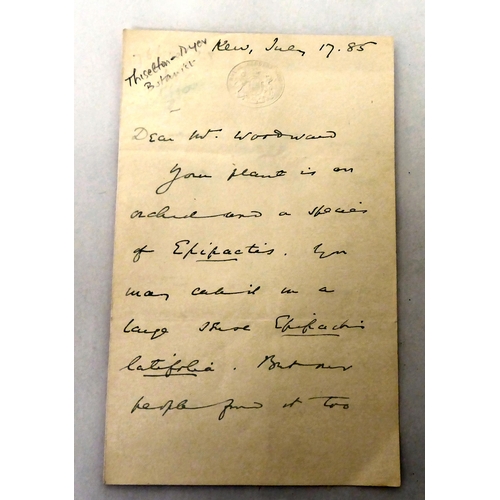 Kew, July 17. 85
Thiselton-Dyer
Botanist
Dear Mr. Woodward
Your plant is an
orchid and a species
of Epipactis. You
may call it in a
large sense Epipactis
latifolia. But our
people find it too